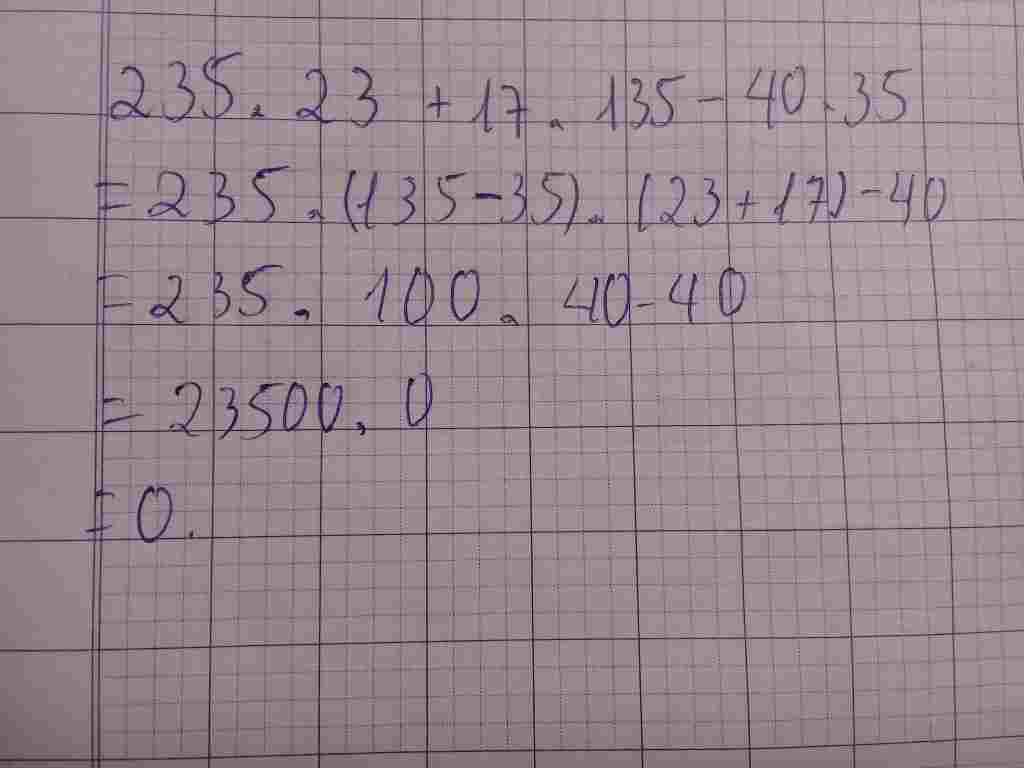 235.23 + 17.135 - 40.35
= 235.(135-35).(23+17)-40
= 235. 100. 40-40
= 23500. 0
= 0.